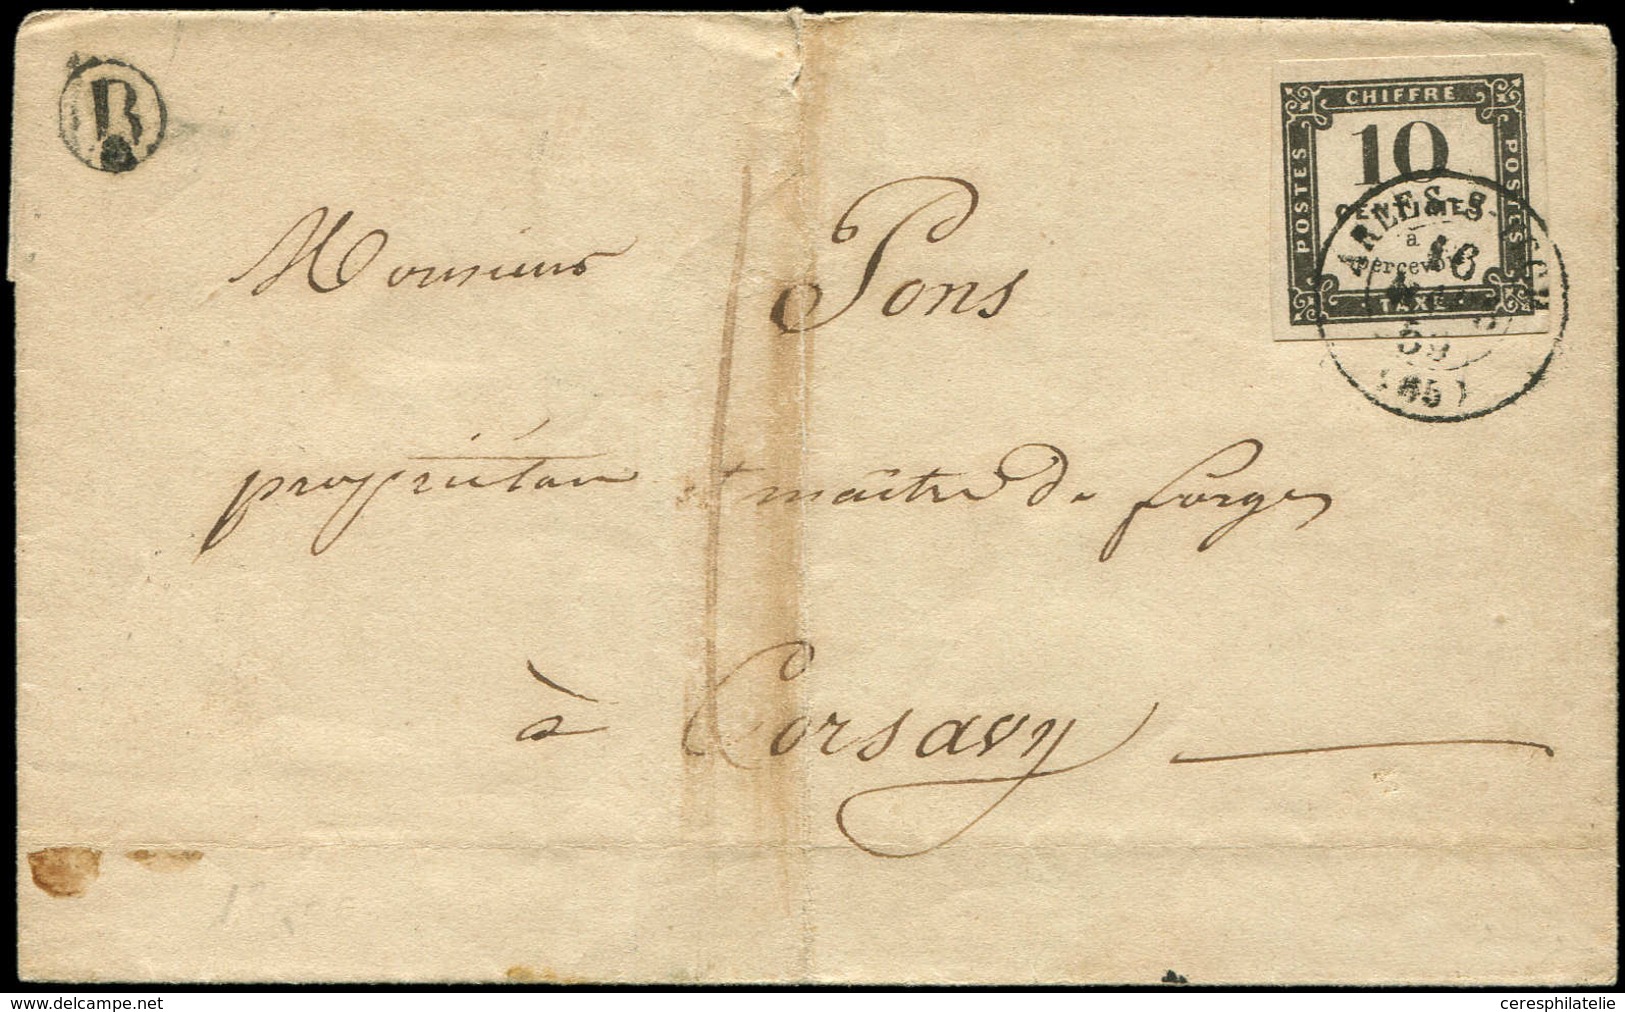 B
CHIFFRE
POSTES
10
POSTES
CENTIMES
à
percevoir
TAXE
ARLES-S-TECH
16
59
(65)
Monsieur Pons
propriétaire et maître de forges
à Corsavy
ceresphilatelie.com